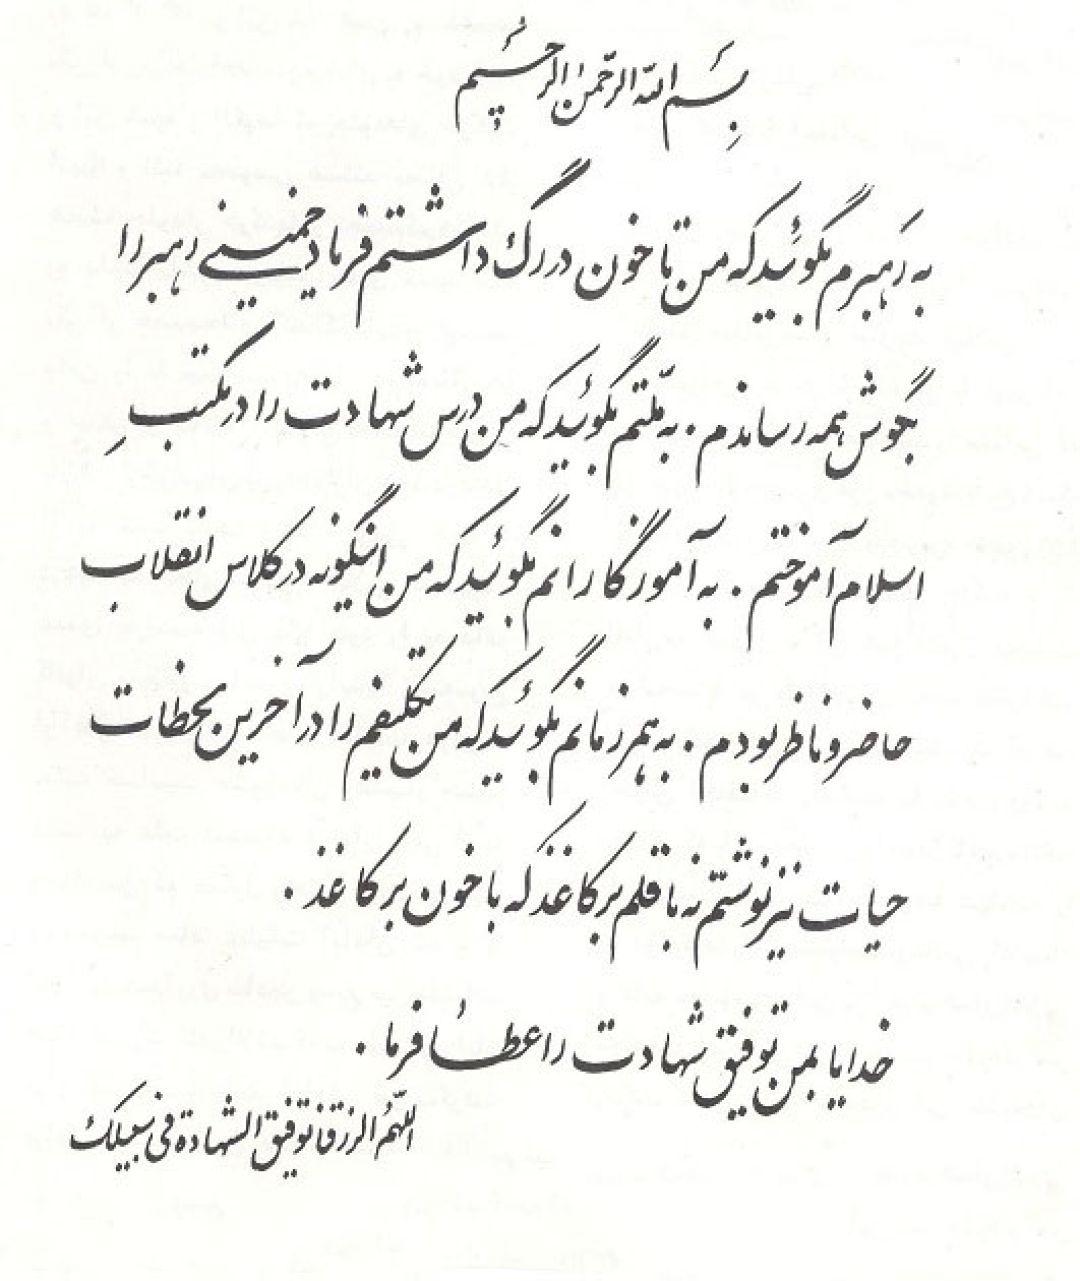 بِسْمِ اللهِ الرَّحْمٰنِ الرَّحیٖمِ
به رهبرم بگوئید که من تا خون در رگ داشتم فریاد خمینی رهبر را
بگوش همه رساندم . به ملّتم بگوئید که من درس شهادت را در مکتبِ
اسلام آموختم . به آموزگارانم بگوئید که من اینگونه در کلاس انقلاب
حاضر و ناظر بودم . به همرزمانم بگوئید که من تکلیفم را در آخرین لحظات
حیات نیز نوشتم نه با قلم بر کاغذ که با خون بر کاغذ .
خدایا بمن توفیق شهادت را عطا فرما .
اللّهُم الرزقنا توفیق الشهادة فی سبیلک